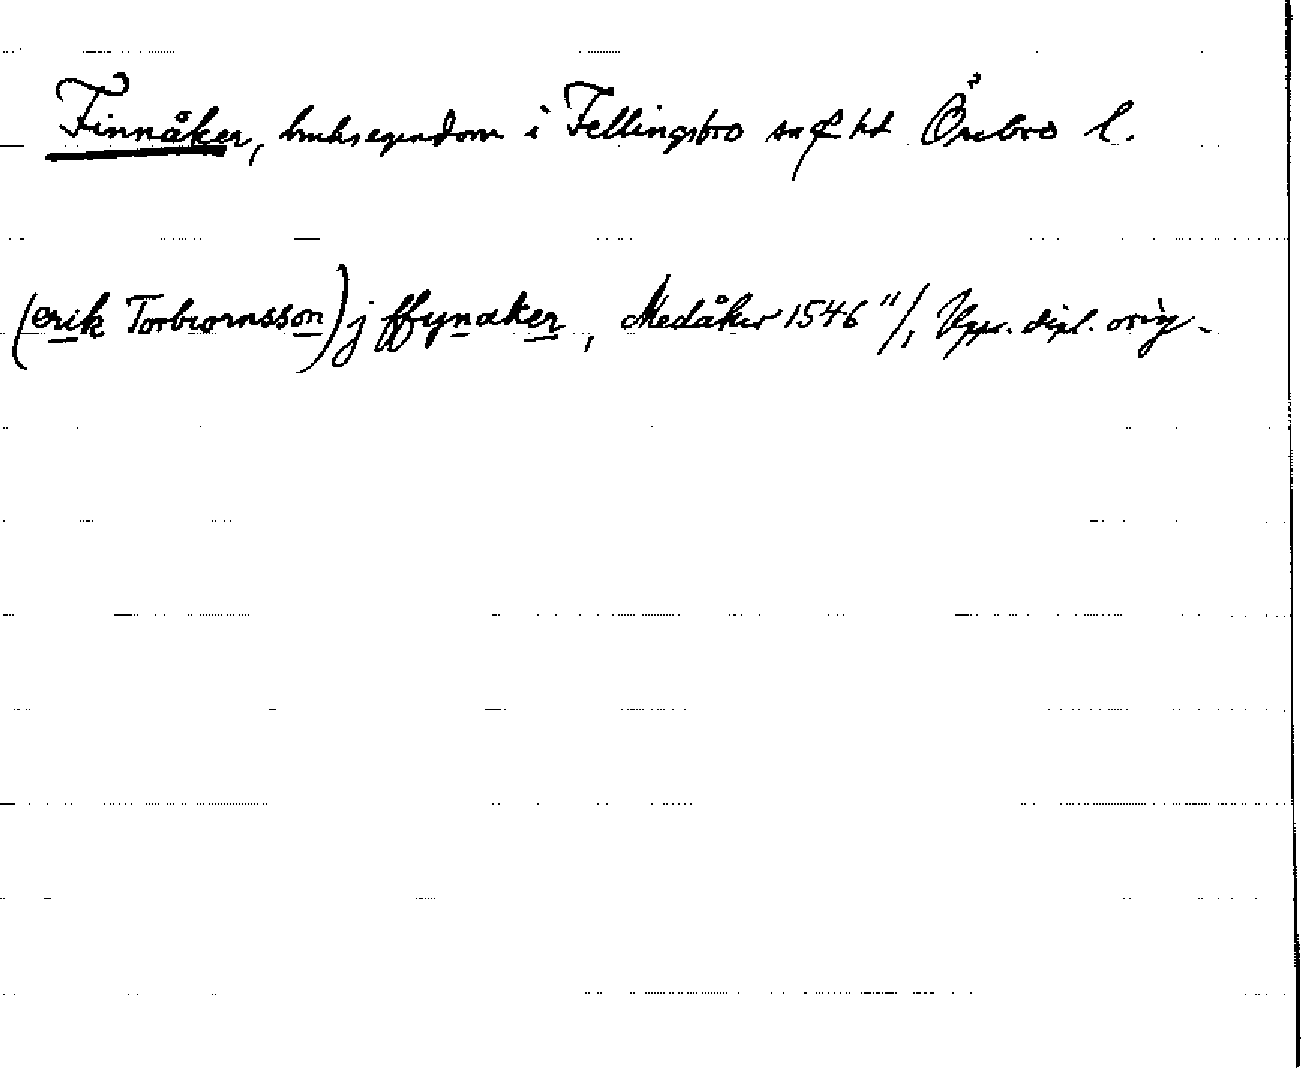 Finnåker, bruksegendom i Fellingsbro sn o hd Örebro l.
(erik Torbiornsson) j ffynaker, Medåker 1546 11/1 Upps. dipl. orig.